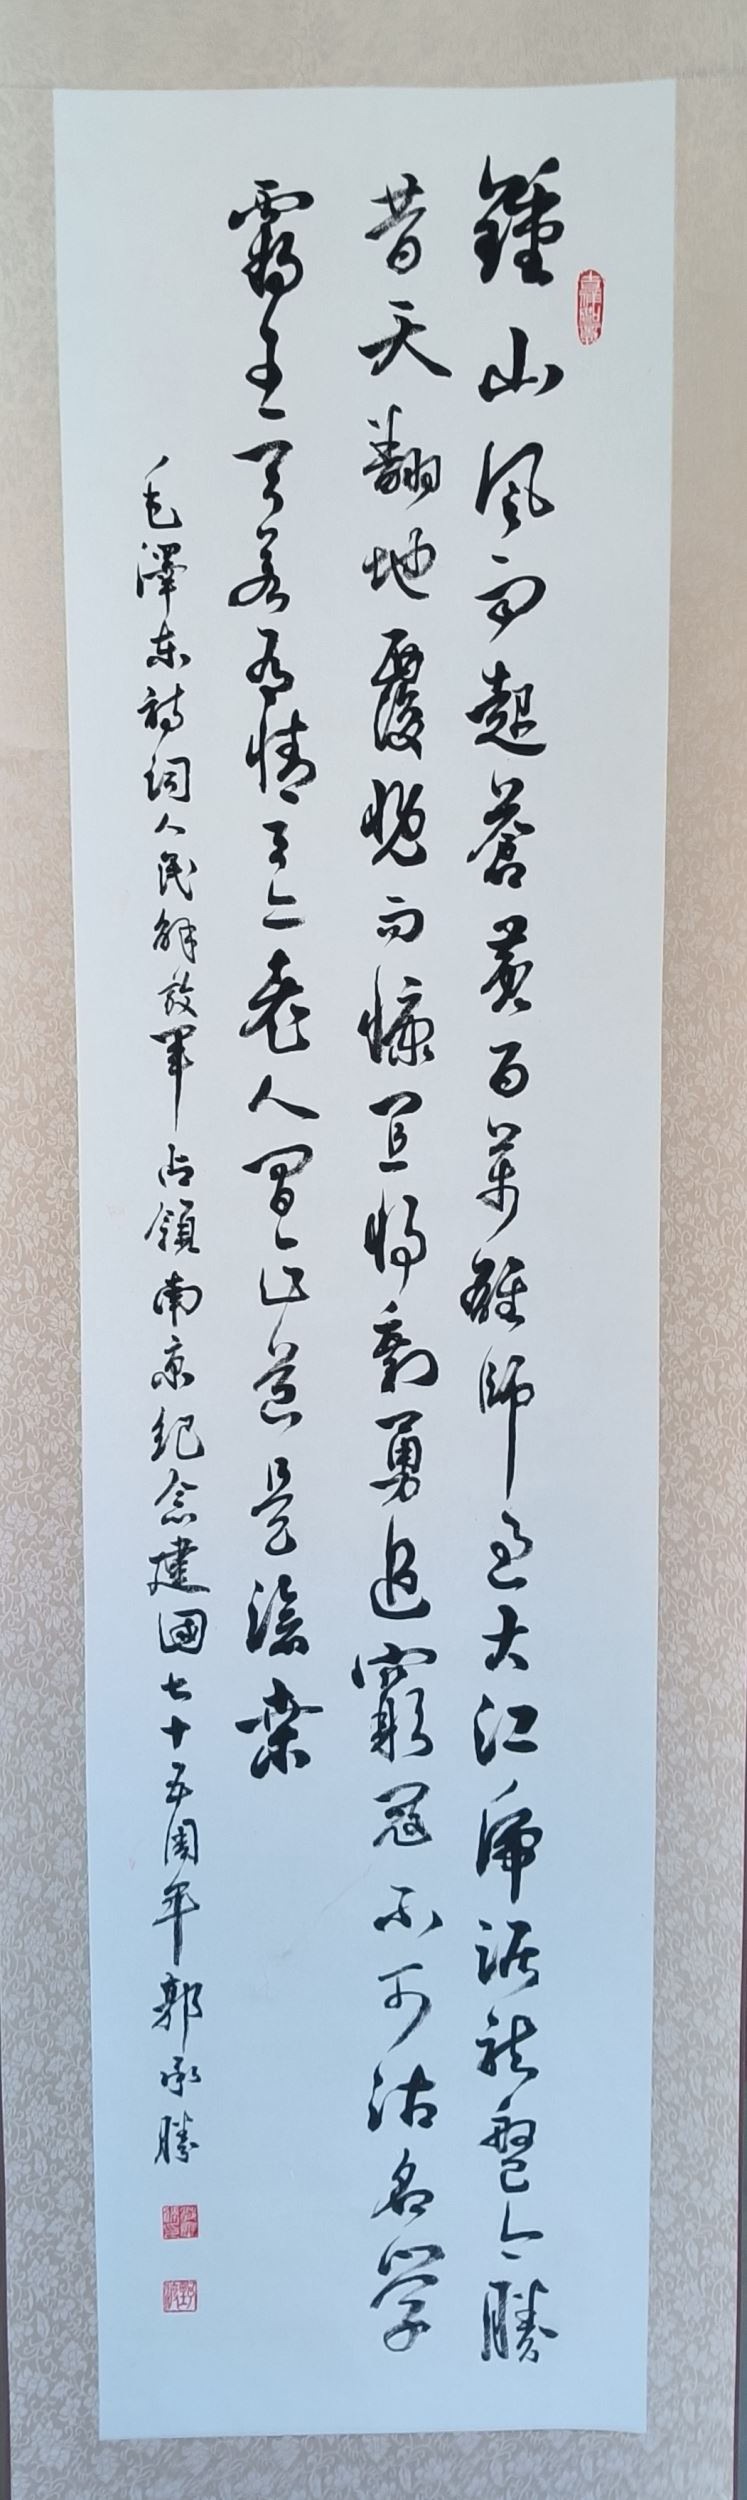 鍾山風雨起蒼黄百萬雄師過大江虎踞龍盤今勝
昔天翻地覆慨而慷宜將剩勇追窮寇不可沽名学
霸王天若有情天亦老人間正道是滄桑
毛澤東詩詞人民解放軍占領南京紀念建國七十五周年郭承勝